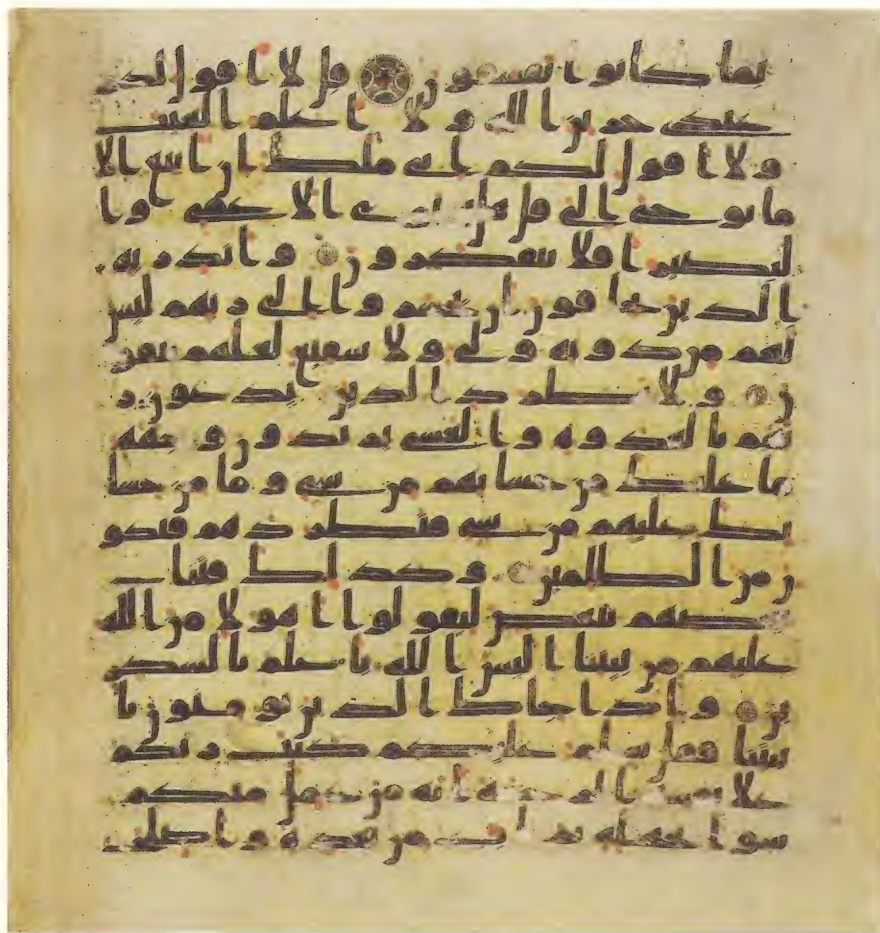 بما كانوا يفسقون قل لا اقول لكم
عندى خزين الله ولا اعلم الغيب
ولا اقول لكم انى ملك ان اتبع الا
ما يوحى الى قل هل يستوى الاعمى وا
لبصير افلا تتفكرون وانذر به
الذين يخافون ان يحشروا الى ربهم ليس
لهم من دونه ولى ولا شفيع لعلهم يتقو
ن ولا تطرد الذين يدعون ر
بهم بالغدوة والعشى يريدون وجهه
ما عليك من حسابهم من شى وما من حسا
بك عليهم من شى فتطردهم فتكو
ن من الظلمين وكذلك فتنا
بعضهم ببعض ليقولوا اهولا من الله
عليهم من بيننا اليس الله باعلم بالشكر
ين واذا جاك الذين يومنون با
يتنا فقل سلم عليكم كتب ربكم
على نفسه الرحمة انه من عمل منكم
سوا بجهلة ثم تاب من بعده واصلح